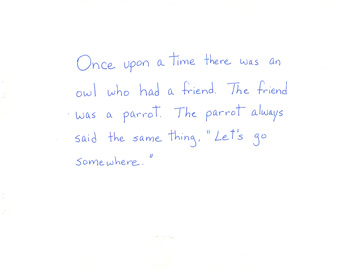 Once upon a time there was an
owl who had a friend. The friend
was a parrot. The parrot always
said the same thing, "Let's go
somewhere."